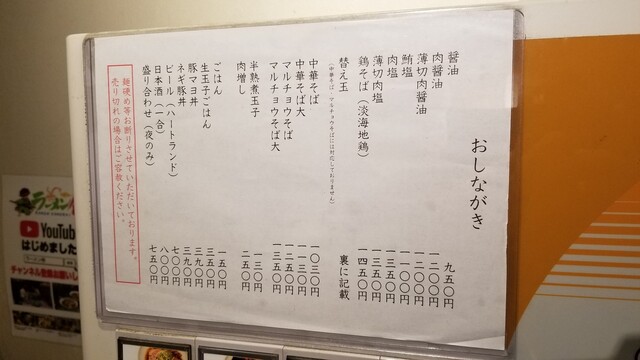 おしながき
醤油 九五〇円
肉醤油 一二〇〇円
薄切肉醤油 一二〇〇円
鮪塩 一一〇〇円
肉塩 一三五〇円
薄切肉塩 一三五〇円
鶏そば（淡海地鶏） 一四五〇円
替え玉 裏に記載
（中華そば、マルチョウそばには対応しておりません）
中華そば 一〇三〇円
中華そば大 一一三〇円
マルチョウそば 一二五〇円
マルチョウそば大 一三五〇円
半熟煮玉子 一三〇円
肉増し 二五〇円
ごはん 一五〇円
生玉子ごはん 三五〇円
豚マヨ丼 三九〇円
ネギ豚丼 三九〇円
ビール（ハートランド） 七〇〇円
日本酒（一合） 八〇〇円
盛り合わせ（夜のみ） 七五〇円
麺硬め等お断りさせていただいております。
売り切れの場合はご容赦ください。
ラーメン
YouTube
はじめました
チャンネル登録お願いし